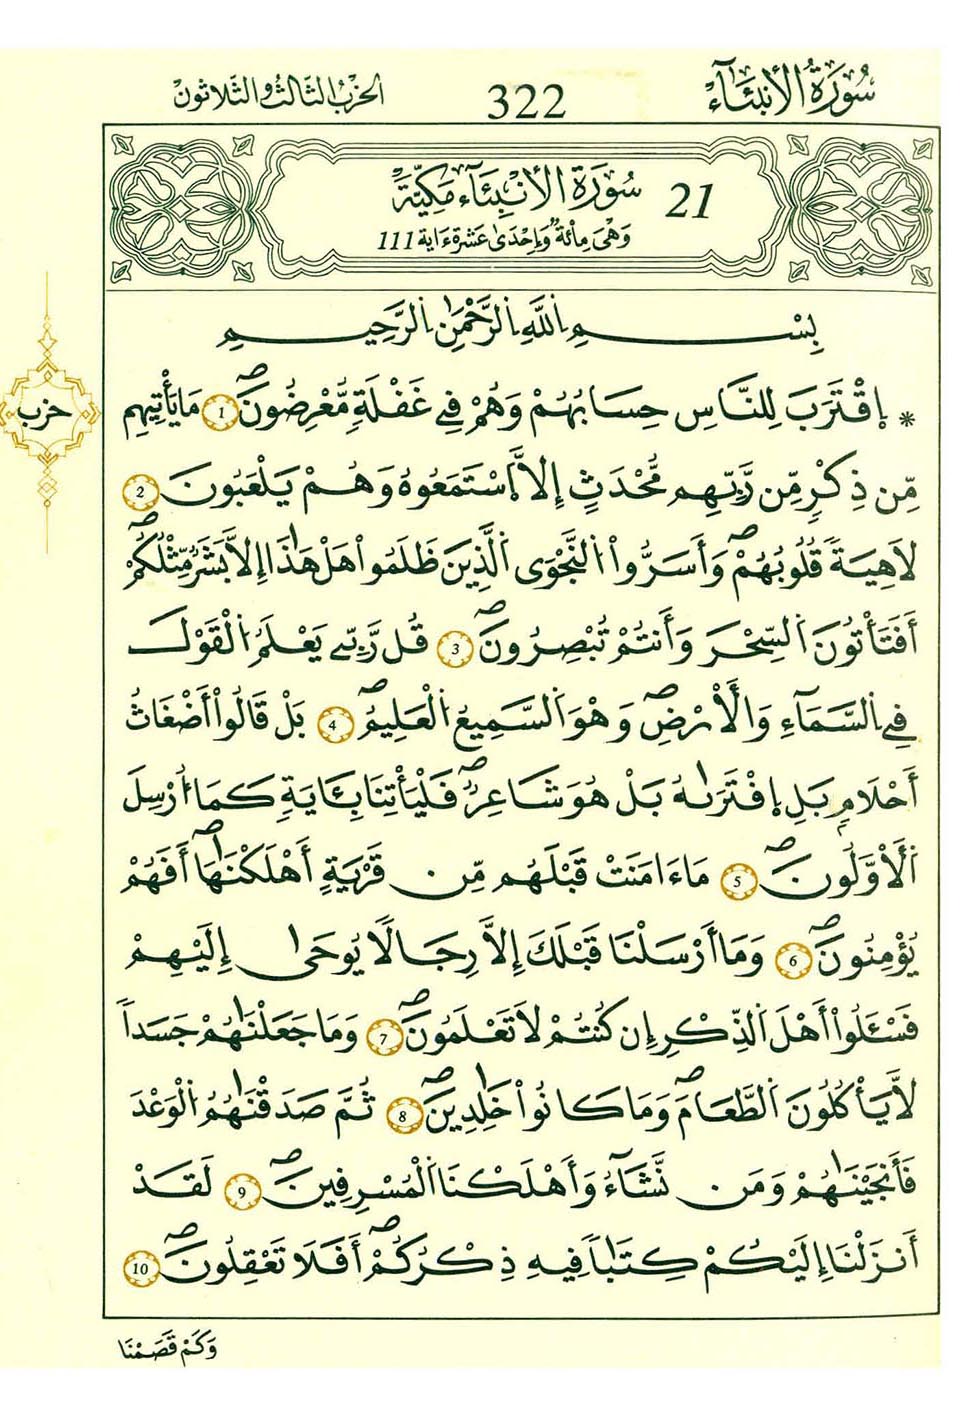 سُورَةُ الْأَنْبِئَاءِ 322 الحِزْبُ الثَّالِثُ وَالثَّلَاثُونَ
21 سُورَةُ الْأَنْبِئَاءِ مَكِّيَّةٌ
وَهْيَ مِائَةٌ وَإِحْدَىٰ عَشْرَةَ ءَايَة 111
بِسْمِ اللَّهِ الرَّحْمَٰنِ الرَّحِيمِ
حزب
* اِقْتَرَبَ لِلنَّاسِ حِسَابُهُمْ وَهُمْ فِي غَفْلَةٖ مُّعْرِضُونَۖ 1 مَا يَأْتِيهِم
مِّن ذِكْرٖ مِّن رَّبِّهِم مُّحْدَثٍ إِلَّا اَسْتَمَعُوهُ وَهُمْ يَلْعَبُونَ 2
لَاهِيَةٗ قُلُوبُهُمْۖ وَأَسَرُّواْ اُلنَّجْوَى اَلَّذِينَ ظَلَمُواْ هَلْ هَٰذَا إِلَّا بَشَرٞ مِّثْلُكُمْۖ
أَفَتَأْتُونَ اَلسِّحْرَ وَأَنتُمْ تُبْصِرُونَۖ 3 قُل رَّبِّي يَعْلَمُ اُلْقَوْلَ
فِي اِلسَّمَآءِ وَالْأَرْضِۖ وَهْوَ اَلسَّمِيعُ اُلْعَلِيمُۖ 4 بَلْ قَالُواْ أَضْغَاثُ
أَحْلَامِۭ بَلِ اِفْتَرَىٰهُ بَلْ هُوَ شَاعِرٞۖ فَلْيَأْتِنَا بِـَٔايَةٖ كَمَا أُرْسِلَ
اَلْأَوَّلُونَۖ 5 مَا ءَامَنَتْ قَبْلَهُم مِّن قَرْيَةٍ أَهْلَكْنَٰهَاۖ أَفَهُمْ
يُؤْمِنُونَۖ 6 وَمَا أَرْسَلْنَا قَبْلَكَ إِلَّا رِجَالٗا يُوحَىٰ إِلَيْهِمْ
فَسْـَٔلُواْ أَهْلَ اَلذِّكْرِ إِن كُنتُمْ لَا تَعْلَمُونَۖ 7 وَمَا جَعَلْنَٰهُمْ جَسَداٗ
لَّا يَأْكُلُونَ اَلطَّعَامَۖ وَمَا كَانُواْ خَٰلِدِينَۖ 8 ثُمَّ صَدَقْنَٰهُمُ اُلْوَعْدَ
فَأَنجَيْنَٰهُمْ وَمَن نَّشَآءُ وَأَهْلَكْنَا اَلْمُسْرِفِينَۖ 9 لَقَدْ
أَنزَلْنَا إِلَيْكُمْ كِتَٰباٗ فِيهِ ذِكْرُكُمْۖ أَفَلَا تَعْقِلُونَۖ 10
وَكَمْ قَصَمْنَا